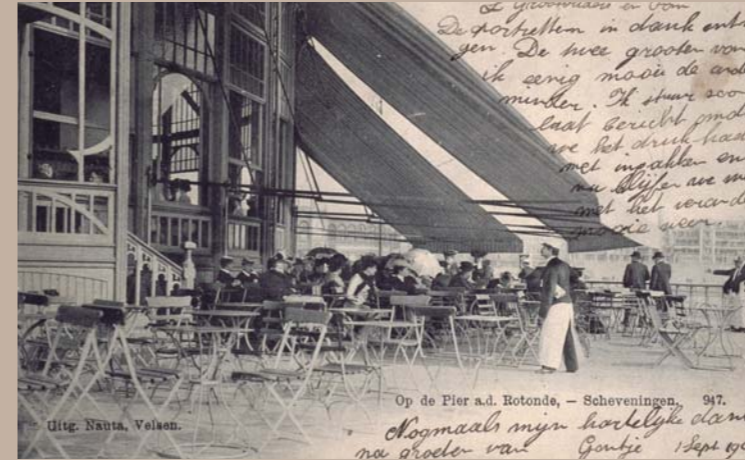 De portretten in dank ont
gen. De twee grooten von
ik eenig mooi de and
minder. Ik stuur zoo
laat bericht omd
we het druk had
met inpakken en
nu blijfen we
met het verand
weer
Op de Pier a.d. Rotonde, — Scheveningen. 947.
Uitg. Nauta, Velsen.
Nogmaals mijn hartelijke dan
na groeten van Gontje 1 Sept 190